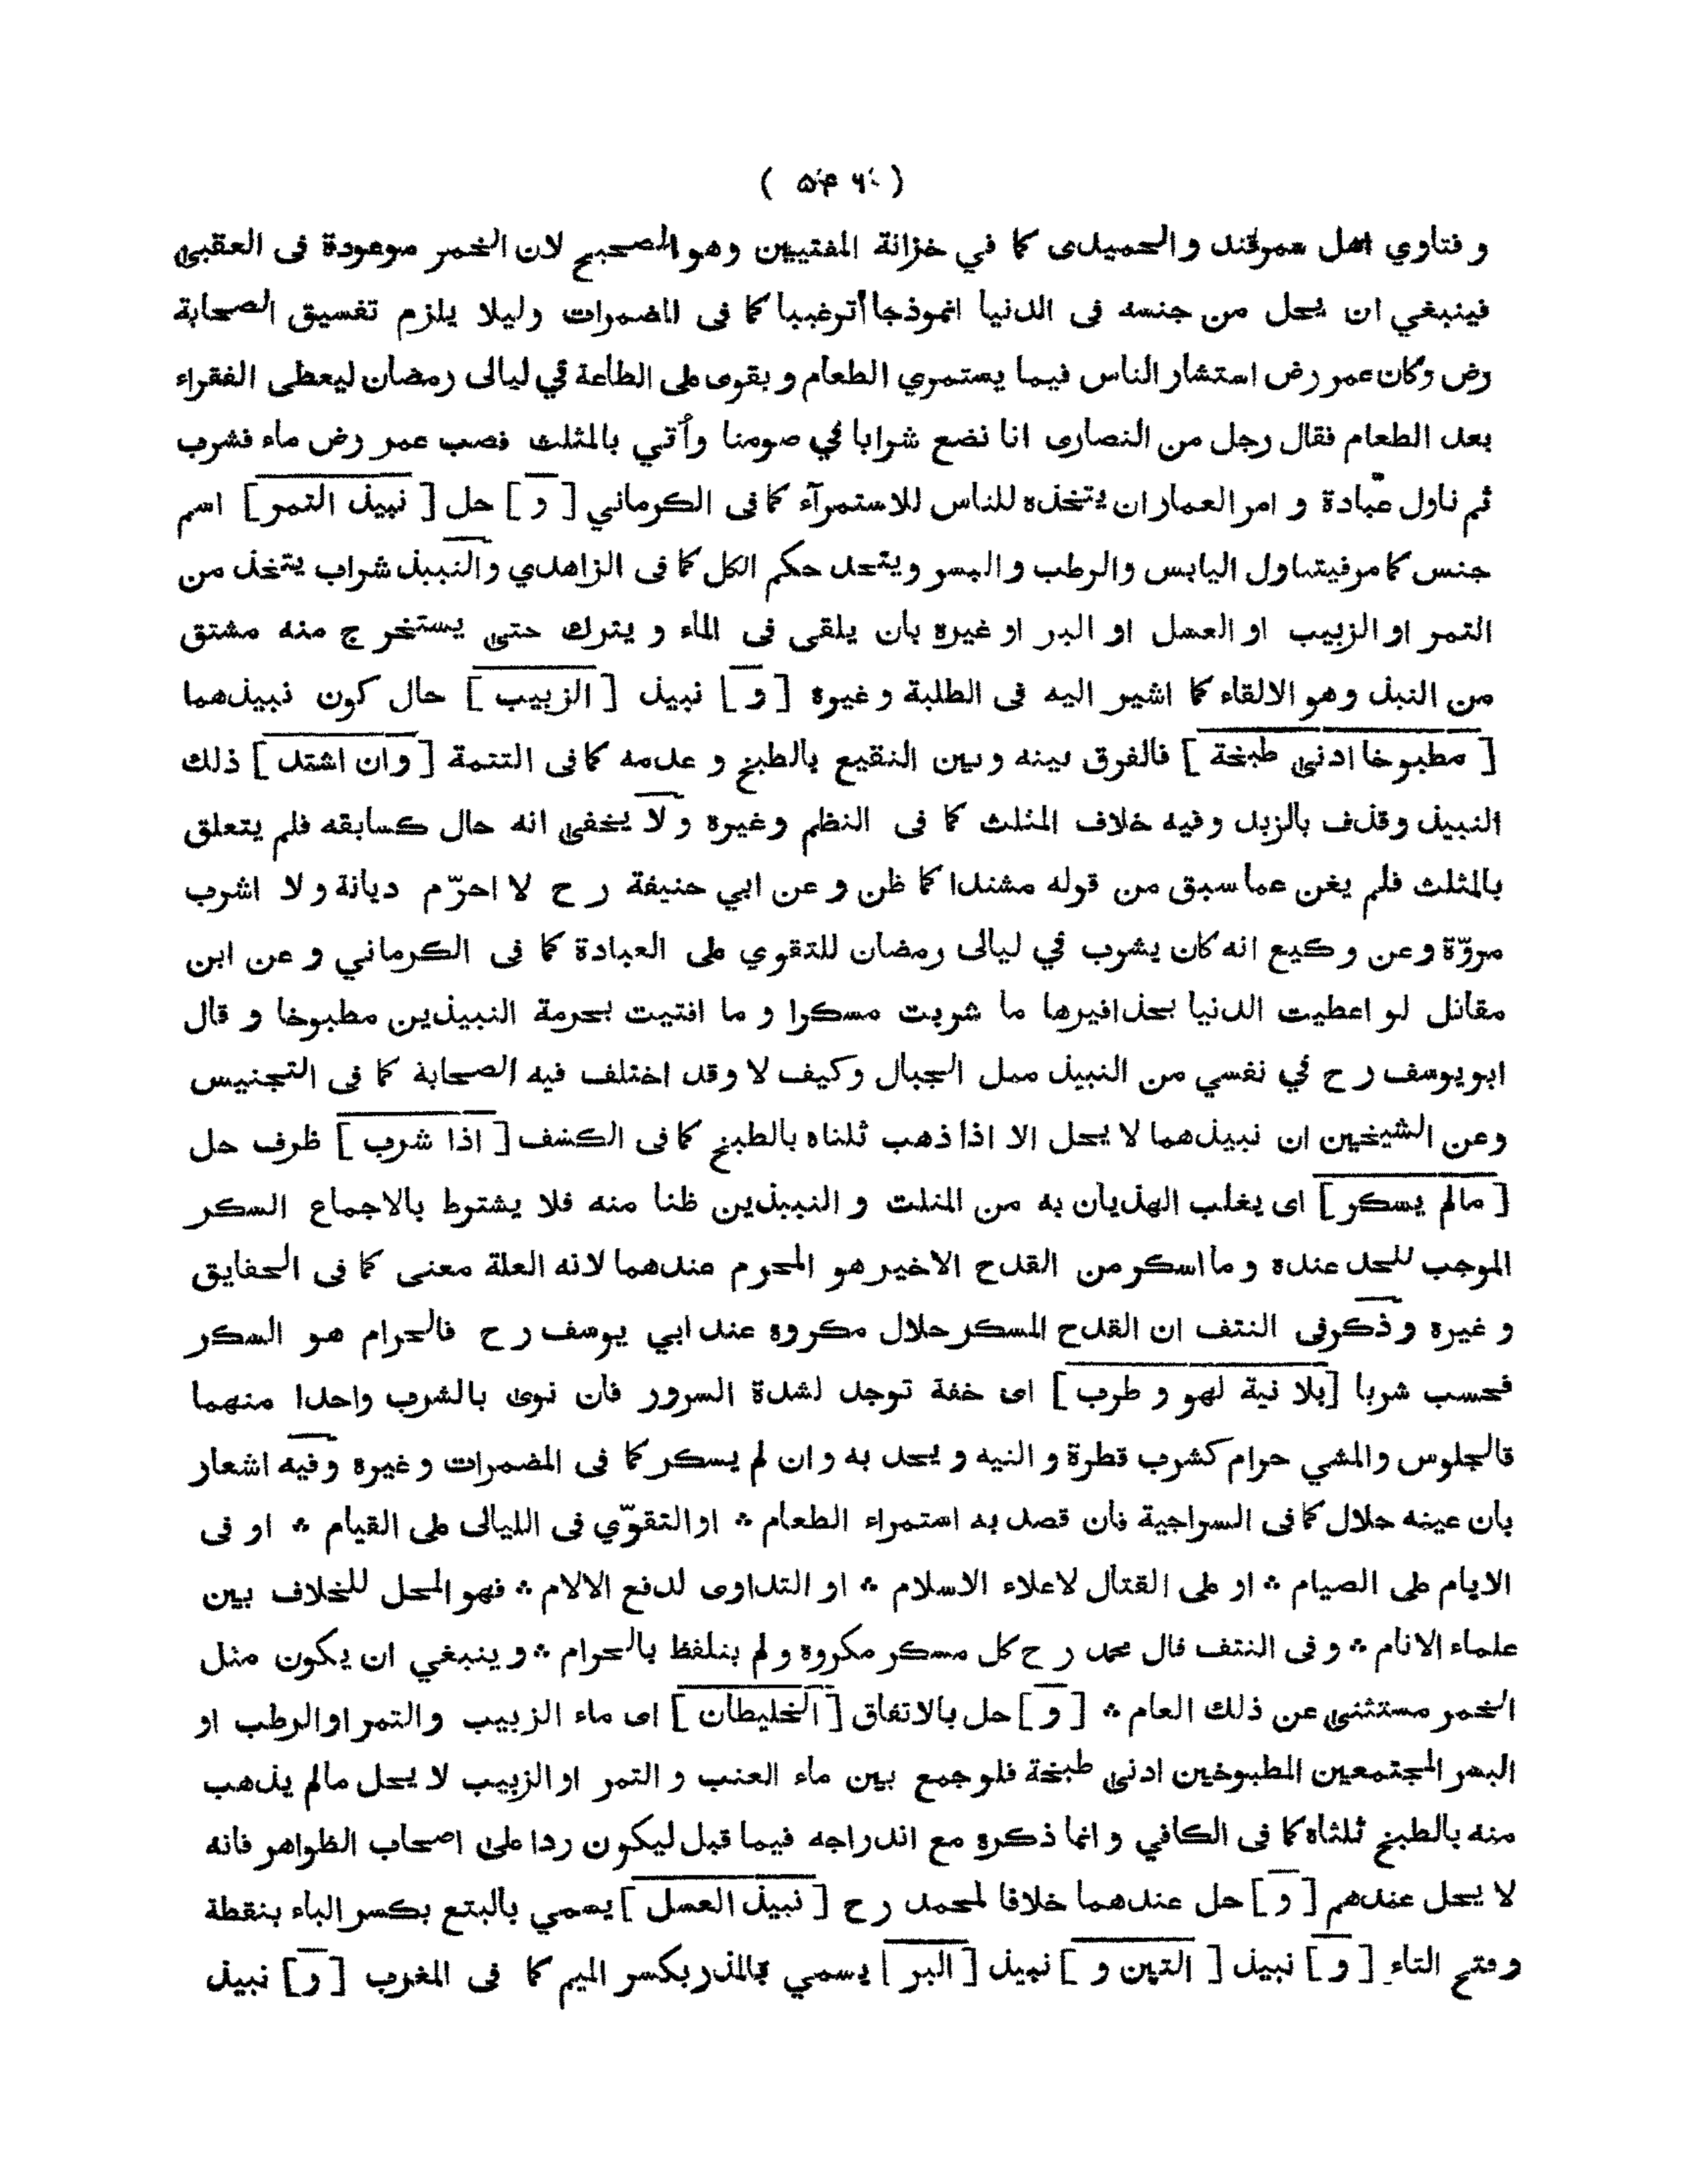 ( ۵۴۶ )
و فتاوي اهل سمرقند و الحميدى كما في خزانة المفتيين وهو الصحيح لان الخمر موعودة فى العقبى
فينبغي ان يحل من جنسه فى الدنيا انموذجا ترغيبا كما فى المضمرات وليلا يلزم تفسيق الصحابة
رض وكان عمر رض استشار الناس فيما يستمري الطعام و يقوى على الطاعة في ليالى رمضان ليعطى الفقراء
بعد الطعام فقال رجل من النصارى انا نضع شرابا في صومنا وأتي بالمثلث فصب عمر رض ماء فشرب
ثم ناول عبادة و امر العمار ان يتخذه للناس للاستمرآء كما فى الكرماني [ و ] حل [ نبيذ التمر ] اسم
جنس كما مر فيتناول اليابس والرطب و البسر و يتحد حكم الكل كما فى الزاهدي و النبيذ شراب يتخذ من
التمر او الزبيب او العسل او البر او غيره بان يلقى فى الماء و يترك حتى يستخرج منه مشتق
من النبذ وهو الالقاء كما اشير اليه فى الطلبة و غيره [ و ] نبيذ [ الزبيب ] حال كون نبيذهما
[ مطبوخا ادنى طبخة ] فالفرق بينه وبين النقيع بالطبخ و عدمه كما فى التتمة [ وان اشتد ] ذلك
النبيذ و قذف بالزبد و فيه خلاف المثلث كما فى النظم وغيره و لا يخفى انه حال كسابقه فلم يتعلق
بالمثلث فلم يغن عما سبق من قوله مشتدا كما ظن و عن ابي حنيفة ر ح لا احرّم ديانة و لا اشرب
مروّة وعن و كيع انه كان يشرب في ليالى رمضان للتقوي على العبادة كما فى الكرماني و عن ابن
مقاتل لو اعطيت الدنيا بحذافيرها ما شربت مسكرا و ما افتيت بحرمة النبيذين مطبوخا و قال
ابو يوسف ر ح في نفسي من النبيذ مثل الجبال وكيف لا وقد اختلف فيه الصحابة كما فى التجنيس
وعن الشيخين ان نبيذهما لا يحل الا اذا ذهب ثلثاه بالطبخ كما فى الكشف [ اذا شرب ] ظرف حل
[ مالم يسكر ] اى يغلب الهذيان به من المثلث و النبيذين ظنا منه فلا يشترط بالاجماع السكر
الموجب للحد عنده و ما اسكر من القدح الاخير هو المحرم عندهما لانه العلة معنى كما فى الحقايق
و غيره و ذكر فى النتف ان القدح المسكر حلال مكروه عند ابي يوسف ر ح فالحرام هو السكر
فحسب شربا [ بلا نية لهو و طرب ] اى خفة توجد لشدة السرور فان نوى بالشرب واحدا منهما
فالجلوس و المشي حرام كشرب قطرة و النيه و يحد به و ان لم يسكر كما فى المضمرات و غيره وفيه اشعار
بان عينه حلال كما فى السراجية فان قصد به استمراء الطعام * او التقوّي فى الليالى على القيام * او فى
الايام على الصيام * او على القتال لاعلاء الاسلام * او التداوى لدفع الالام * فهو المحل للخلاف بين
علماء الانام * و فى النتف قال محمد ر ح كل مسكر مكروه و لم يتلفظ بالحرام * و ينبغي ان يكون مثل
الخمر مستثنى عن ذلك العام * [ و ] حل بالاتفاق [ الخليطان ] اى ماء الزبيب والتمر او الرطب او
البسر المجتمعين المطبوخين ادنى طبخة فلو جمع بين ماء العنب و التمر او الزبيب لا يحل مالم يذهب
منه بالطبخ ثلثاه كما فى الكافي و انما ذكره مع اندراجه فيما قبل ليكون ردا على اصحاب الظواهر فانه
لا يحل عندهم [ و ] حل عندهما خلافا لمحمد ر ح [ نبيذ العسل ] يسمي بالبتع بكسر الباء بنقطة
و فتح التاء [ و ] نبيذ [ التين و ] نبيذ [ البر ] يسمي بالمذر بكسر الميم كما فى المغرب [ و ] نبيذ